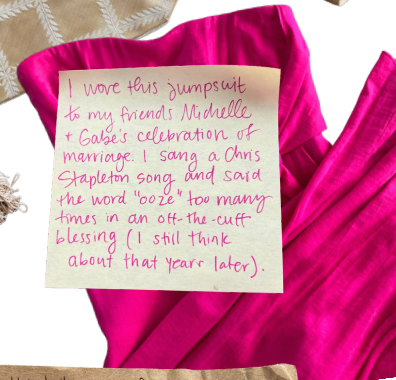 I wore this jumpsuit
to my friends Michelle
+ Gabe's celebration of
marriage. I sang a Chris
Stapleton song and said
the word "ooze" too many
times in an off-the-cuff
blessing (I still think
about that years later).